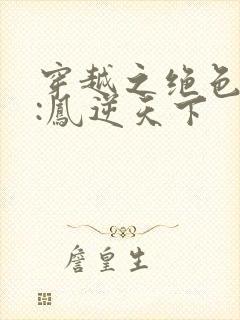 穿越之绝色
:鳳逆天下
詹皇生